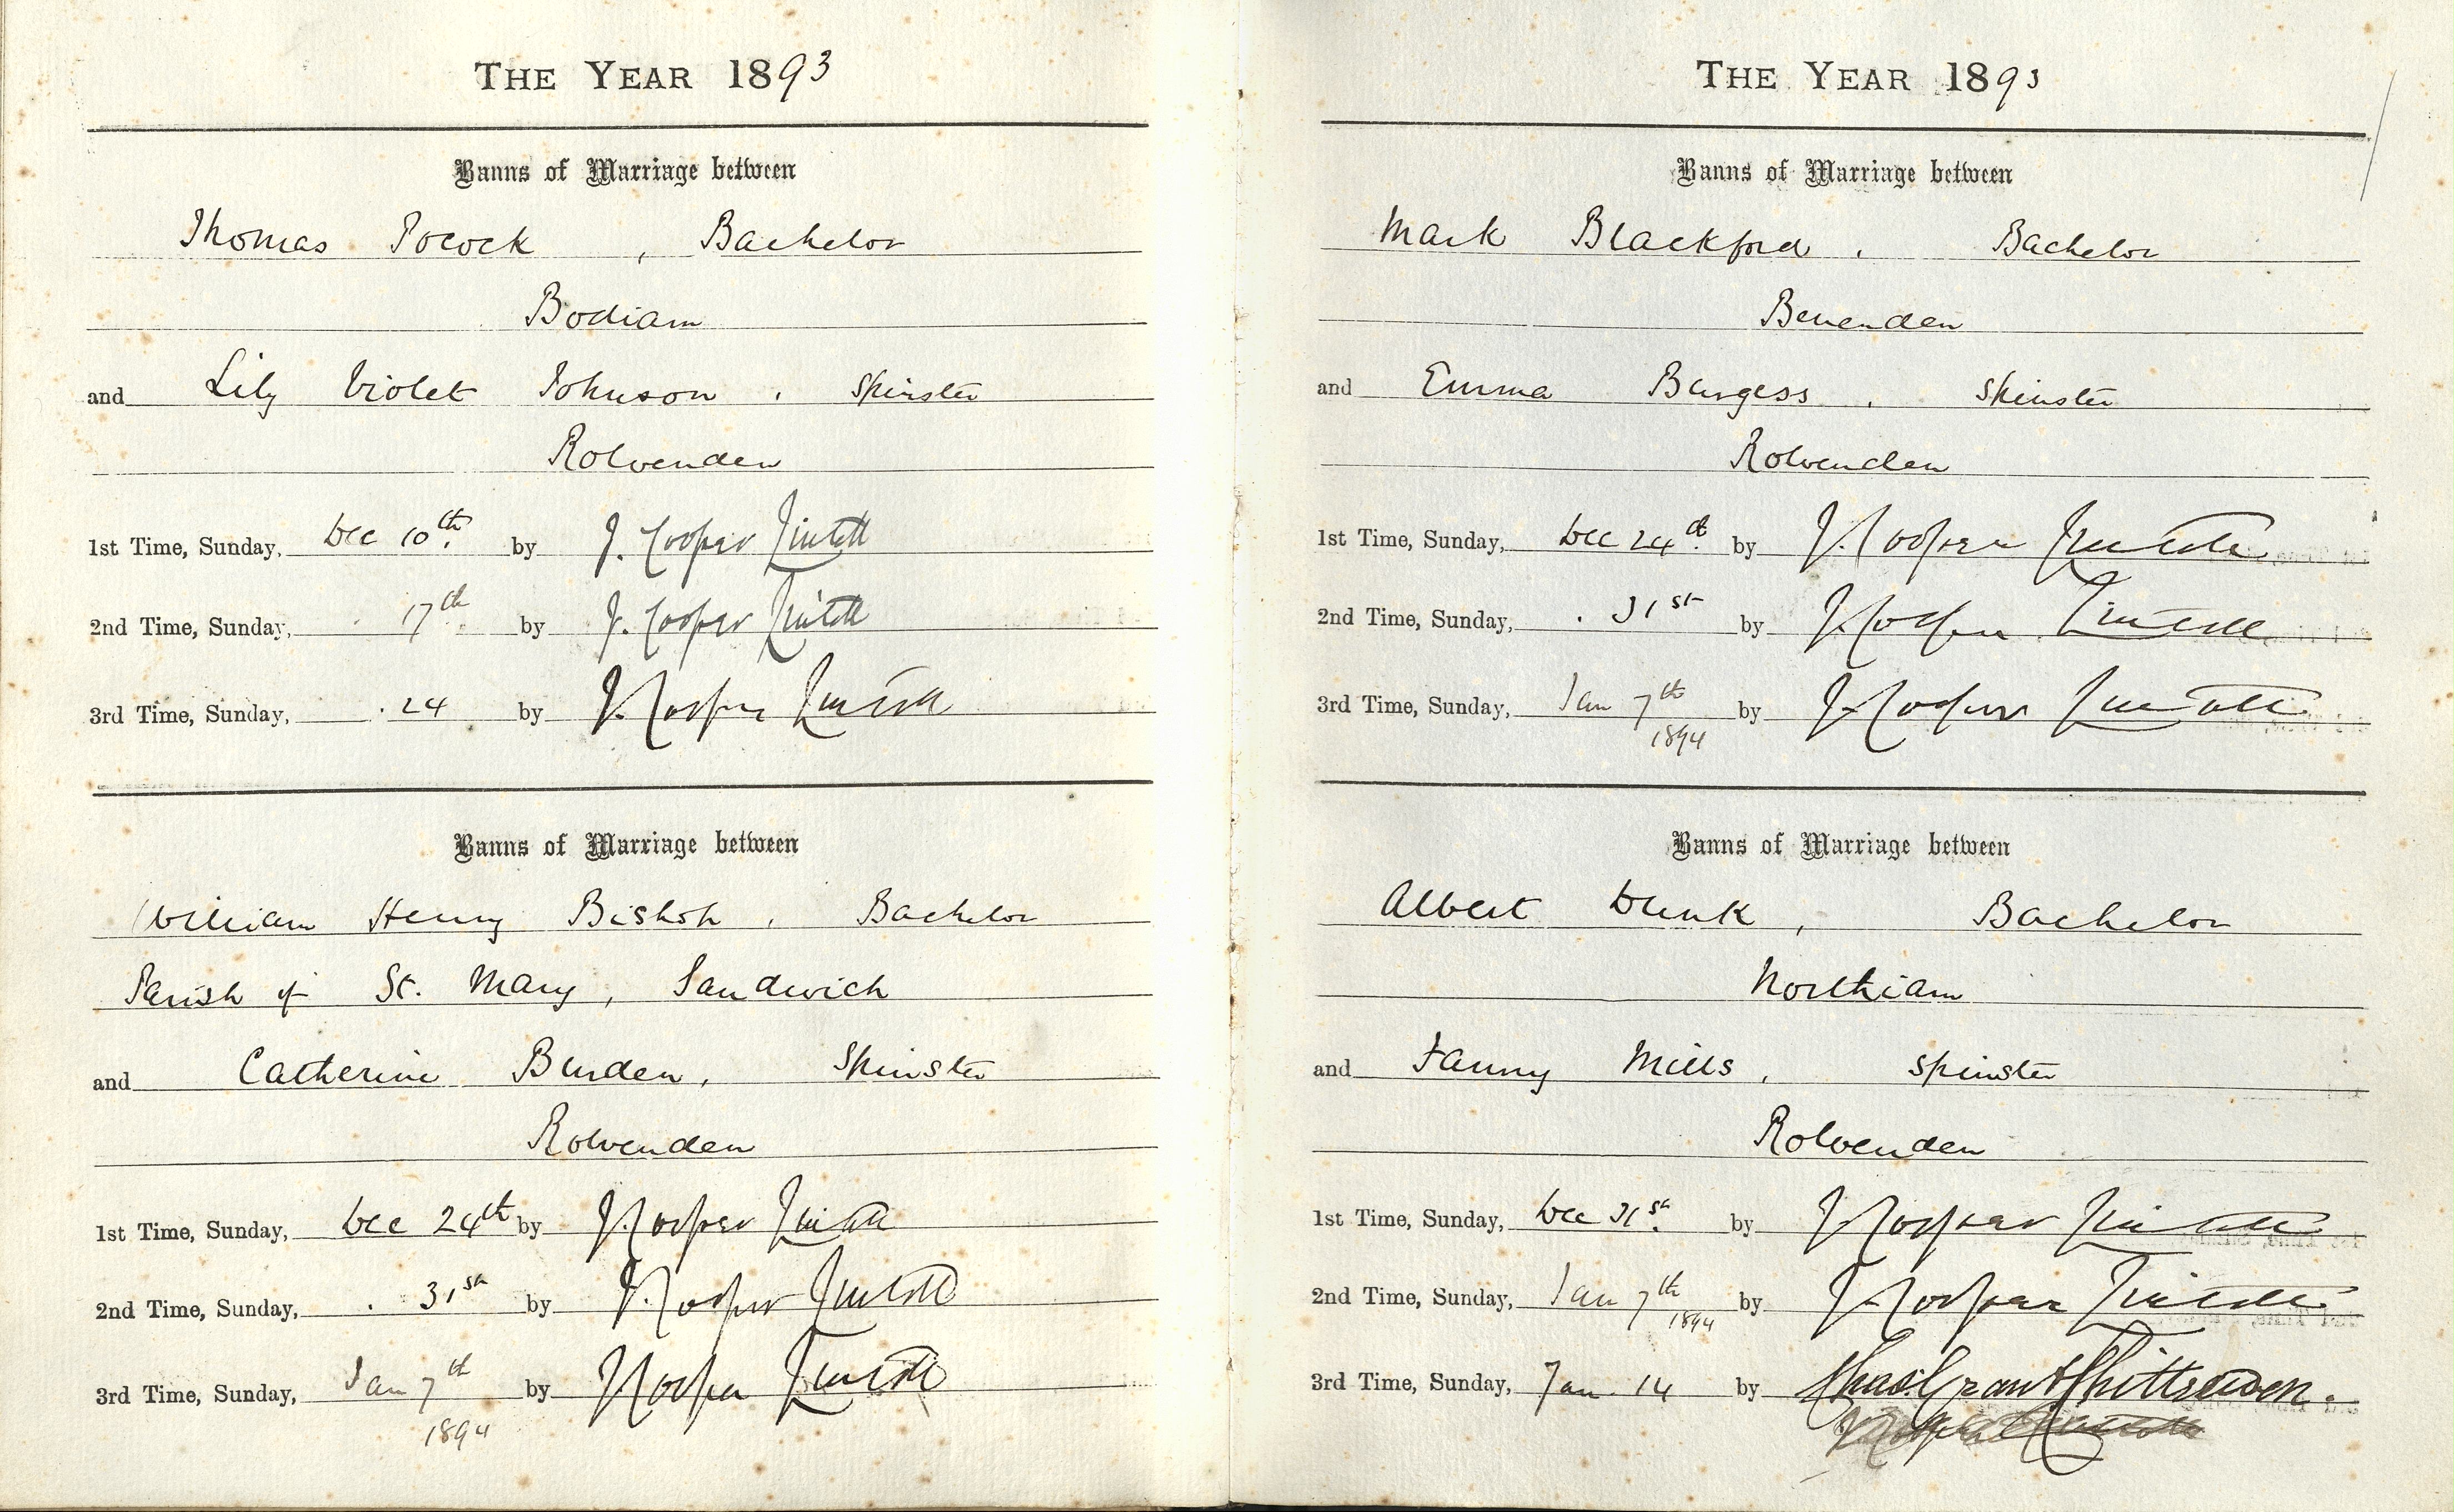 THE YEAR 1893
Banns of Marriage between
Thomas Pocock, Bachelor
Bodiam
and Lily Violet Johnson. Spinster
Rolvenden
1st Time, Sunday, Dec 10th. by J. Cooper
2nd Time, Sunday, 17th by J. Cooper
3rd Time, Sunday, . 24 by J. Cooper
Banns of Marriage between
William Henry Bishop. Bachelor
Parish of St. Mary, Sandwich
and Catherine Burden, Spinster
Rolvenden
1st Time, Sunday, Dec 24th by J. Cooper
2nd Time, Sunday, . 31st by J. Cooper
3rd Time, Sunday, Jan 7th by J. Cooper
1894
THE YEAR 1893
Banns of Marriage between
Mark Blackford. Bachelor
Benenden
and Emma Burgess. Spinster
Rolvenden
1st Time, Sunday, Dec 24th. by J. Cooper
2nd Time, Sunday, . 31st by J. Cooper
3rd Time, Sunday, Jan 7th by J. Cooper
1894
Banns of Marriage between
Albert Dunk, Bachelor
Northiam
and Fanny Mills, Spinster
Rolvenden
1st Time, Sunday, Dec 31st. by J. Cooper
2nd Time, Sunday, Jan 7th by J. Cooper
1894
3rd Time, Sunday, Jan. 14 by Chas. Grant Chittenden.